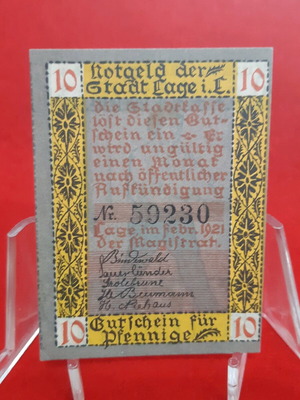 10 Notgeld der 10
Stadt Lage i.L.
die Stadtkasse
löst diesen Gut-
schein ein – Er
wird ungültig
einen Monat
nach öffentlicher
Aufkündigung
Nr. 59230
Lage, im Febr. 1921
der Magistrat.
10 Gutschein für 10
Pfennige